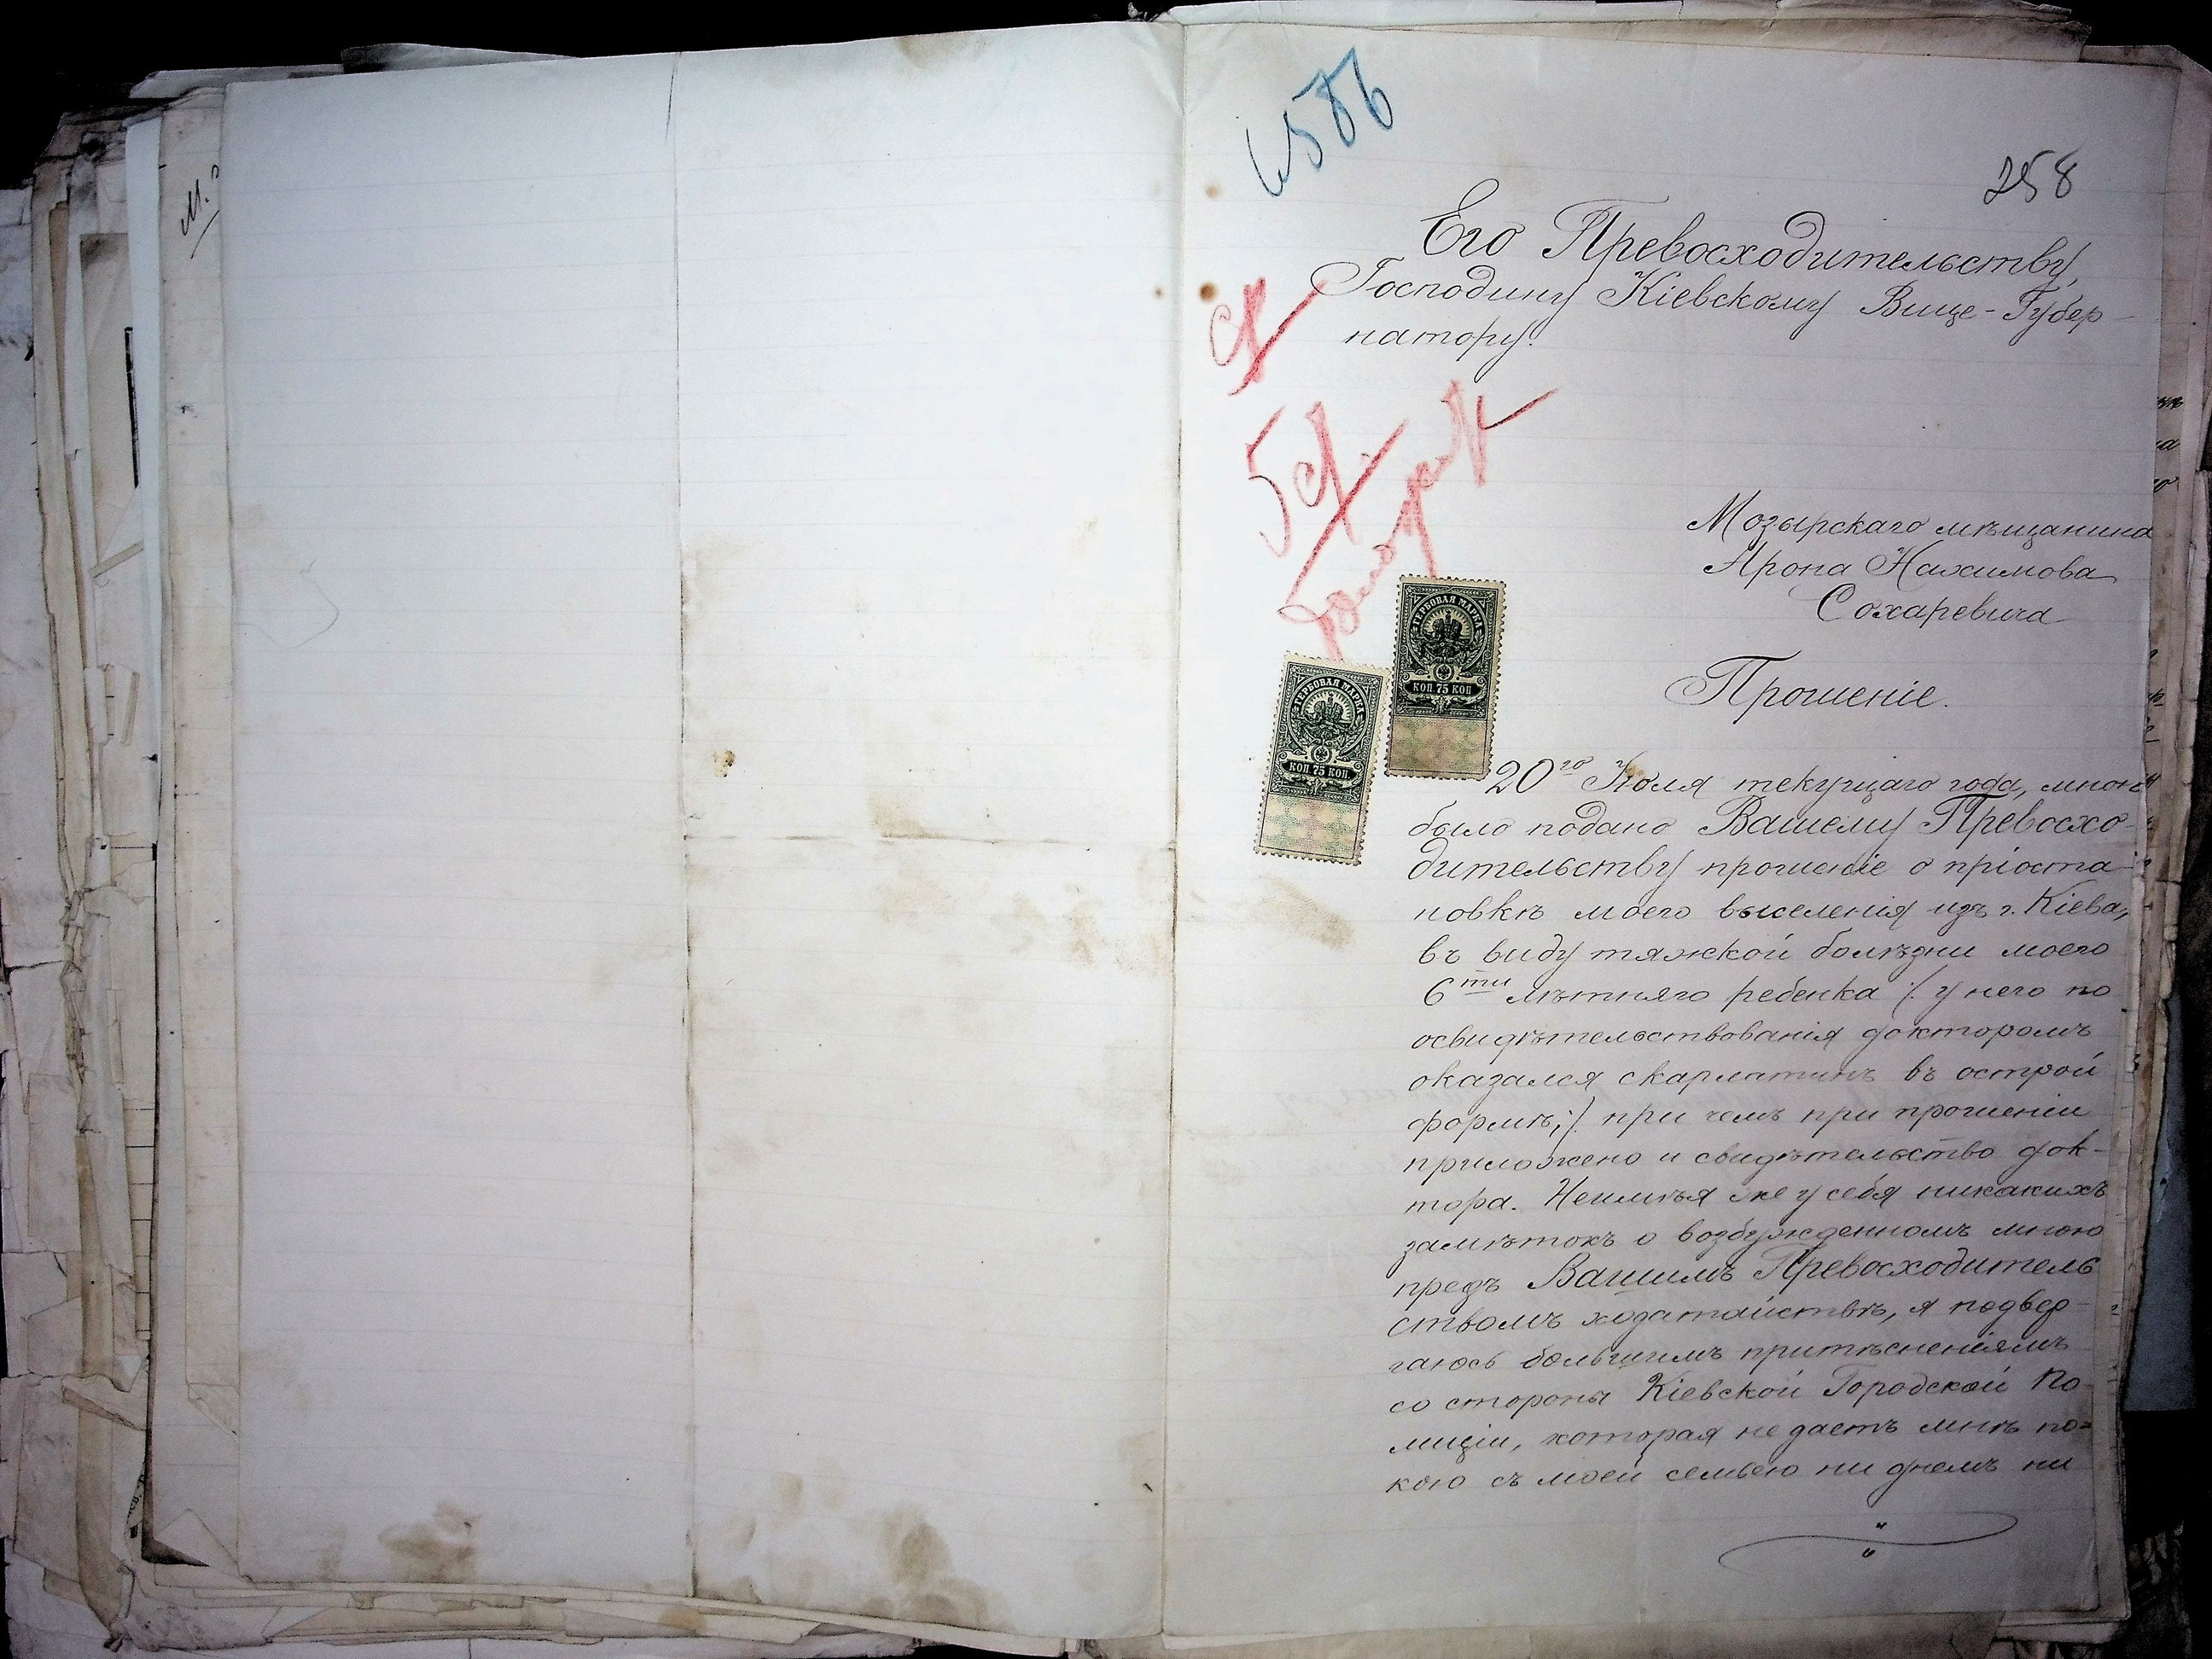 6586
258
Его Превосходительству,
Господину Кіевскому Вице-Губер-
натору.
Мозырскаго мѣщанина
Арона Нахимова
Сохаревича
Прошеніе.
ГЕРБОВАЯ МАРКА
КОП 75 КОП
ГЕРБОВАЯ МАРКА
КОП 75 КОП
20го Іюля текущаго года, мною
было подано Вашему Превосхо-
дительству прошеніе о пріоста-
новкѣ моего выселенія изъ г. Кіева,
въ виду тяжкой болѣзни моего
6ти лѣтняго ребенка /. у него по
освидѣтельствованія докторомъ
оказался скарлатинъ въ острой
формѣ; /. при чемъ при прошеніи
приложено и свидѣтельство док-
тора. Неимѣя же у себя никакихъ
замѣтокъ о возбужденномъ мною
предъ Вашимъ Превосходитель
ствомъ ходатайствѣ, я подвер-
гаюсь большимъ притѣсненіямъ
со стороны Кіевской Городской По-
лиціи, которая не даетъ мнѣ по-
кою съ моей семьею ни днемъ ни